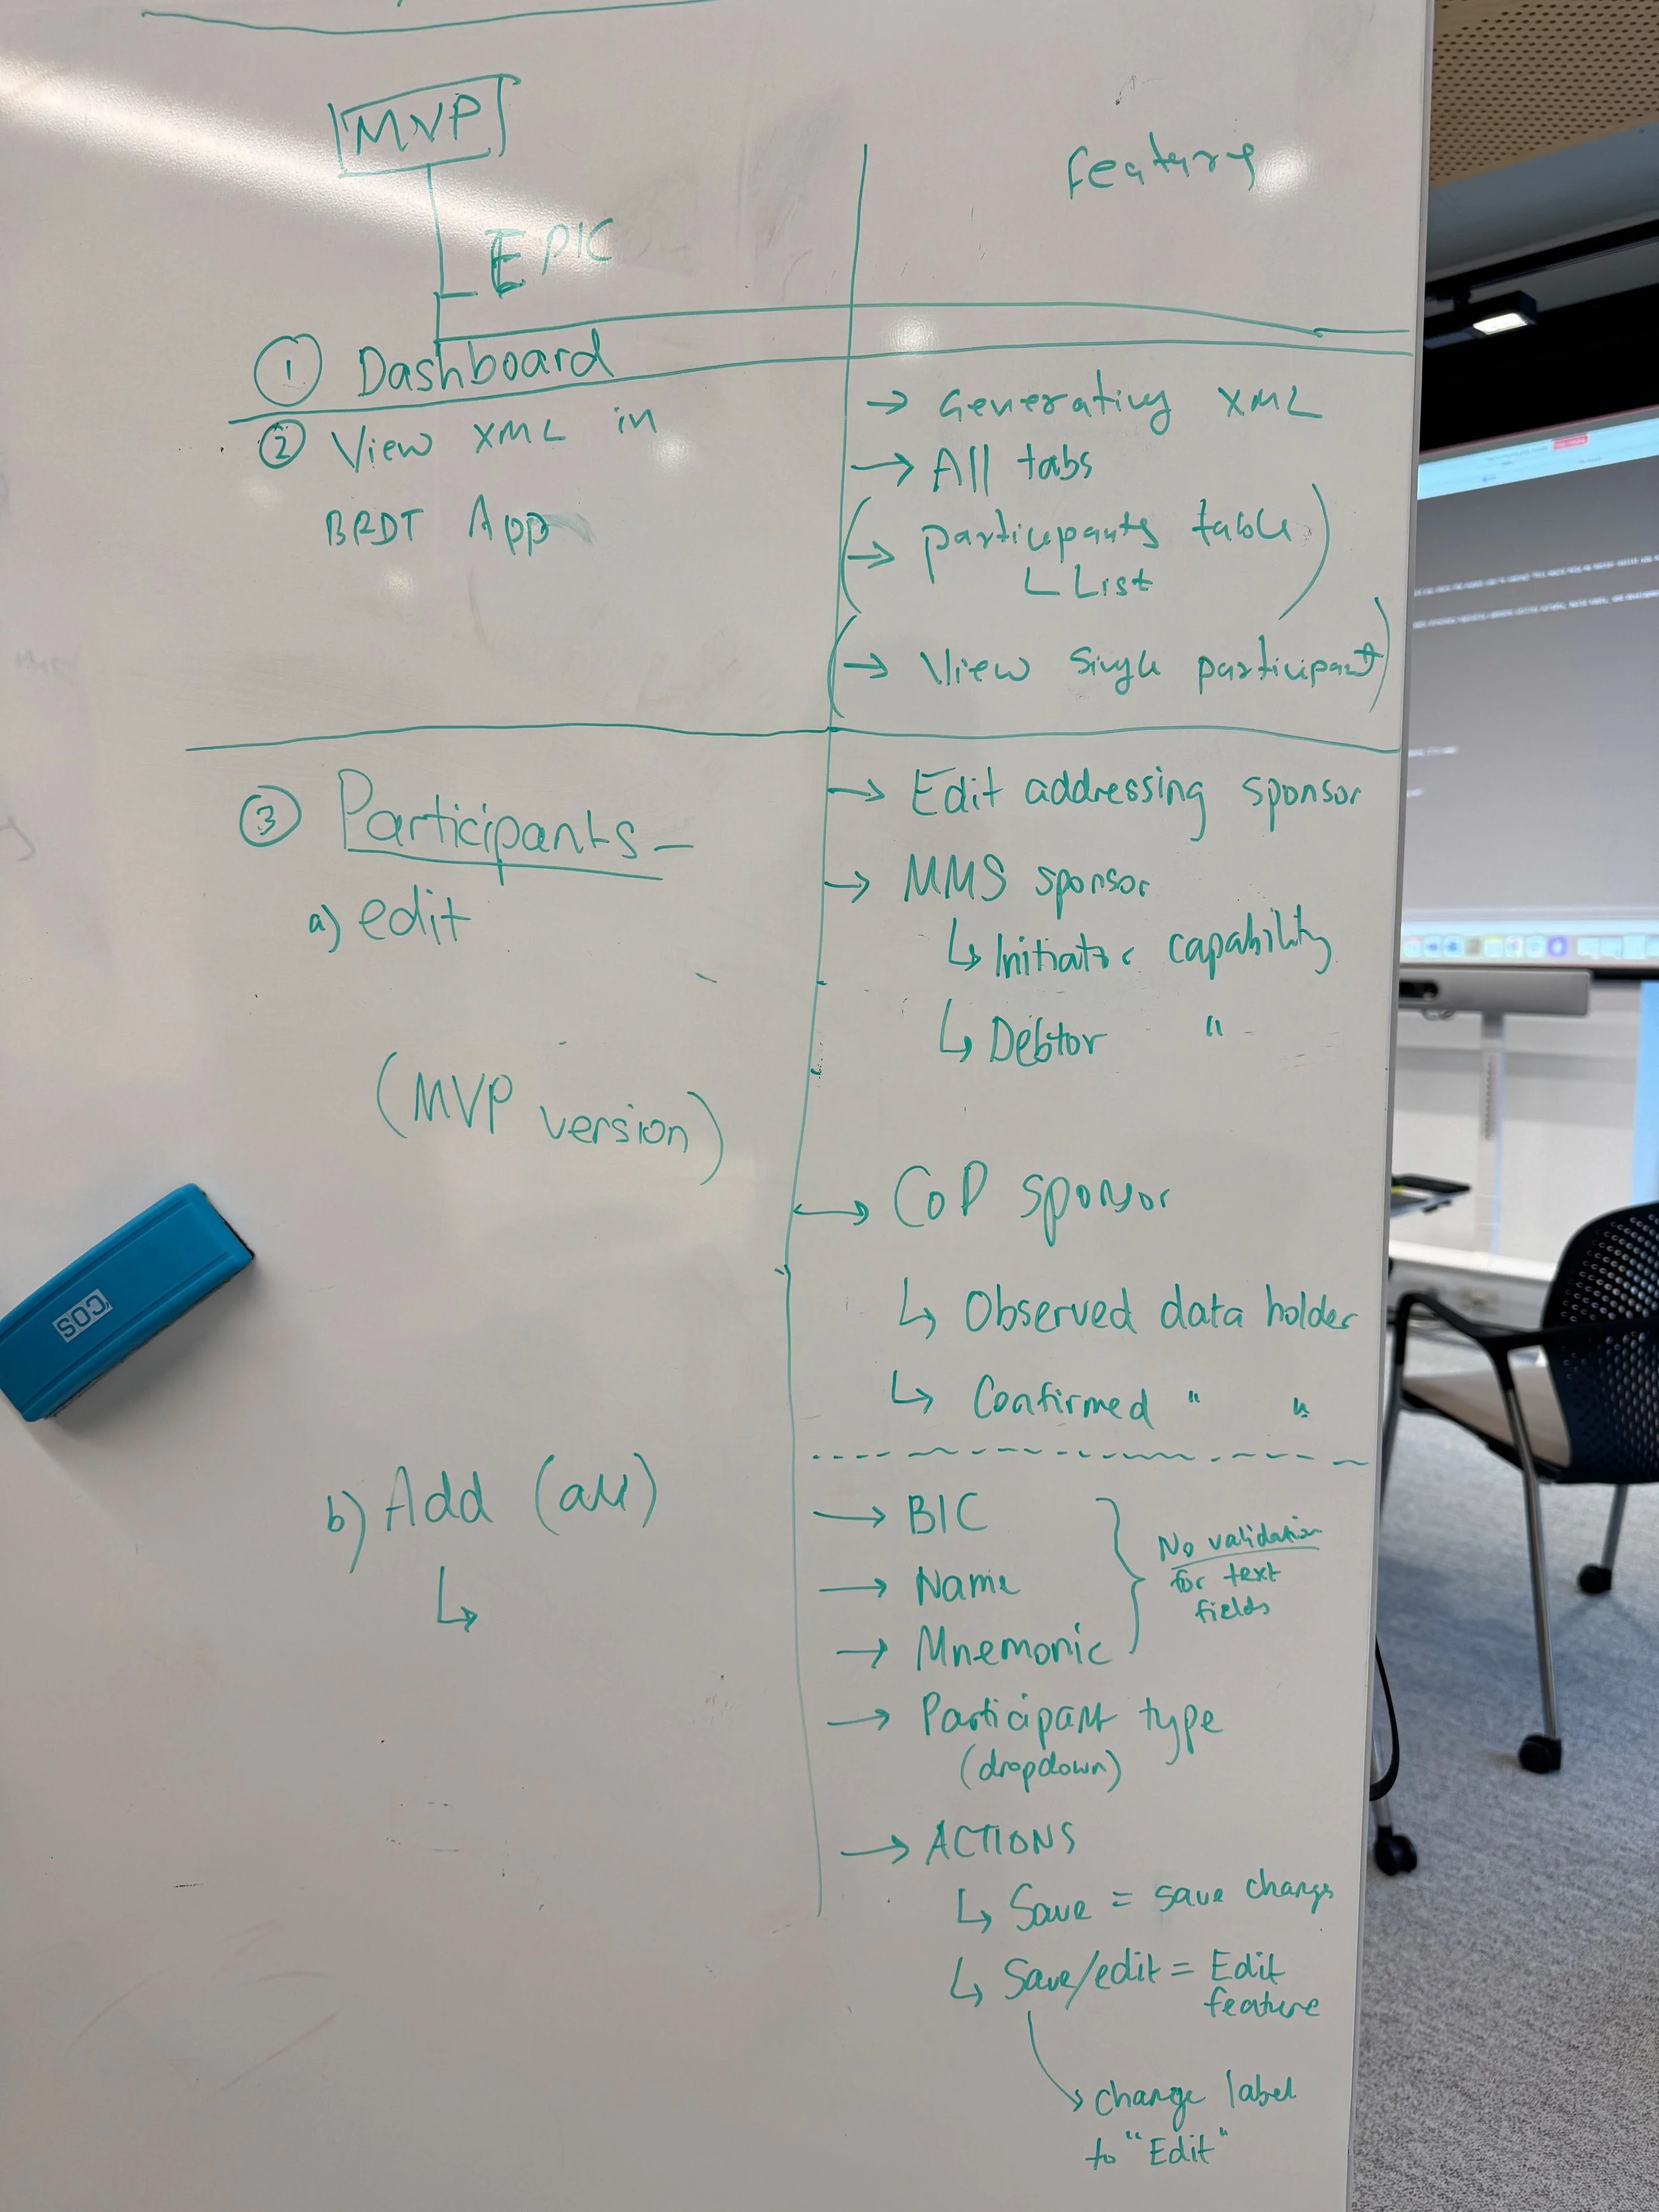 MVP
EPIC
features
① Dashboard
② View XML in
BRDT App
→ Generating XML
→ All tabs
(→ participants table
∟ List)
(→ View single participant)
③ Participants -
a) edit
(MVP version)
→ Edit addressing sponsor
→ MMS sponsor
↳ Initiator capability
↳ Debtor "
→ CoP sponsor
↳ Observed data holder
↳ Confirmed " "
b) Add (all)
↳
→ BIC
→ Name
→ Mnemonic
} No validation
for text
fields
→ Participant type
(dropdown)
→ ACTIONS
↳ Save = save changes
↳ Save/edit = Edit
feature
↘ change label
to "Edit"
COS